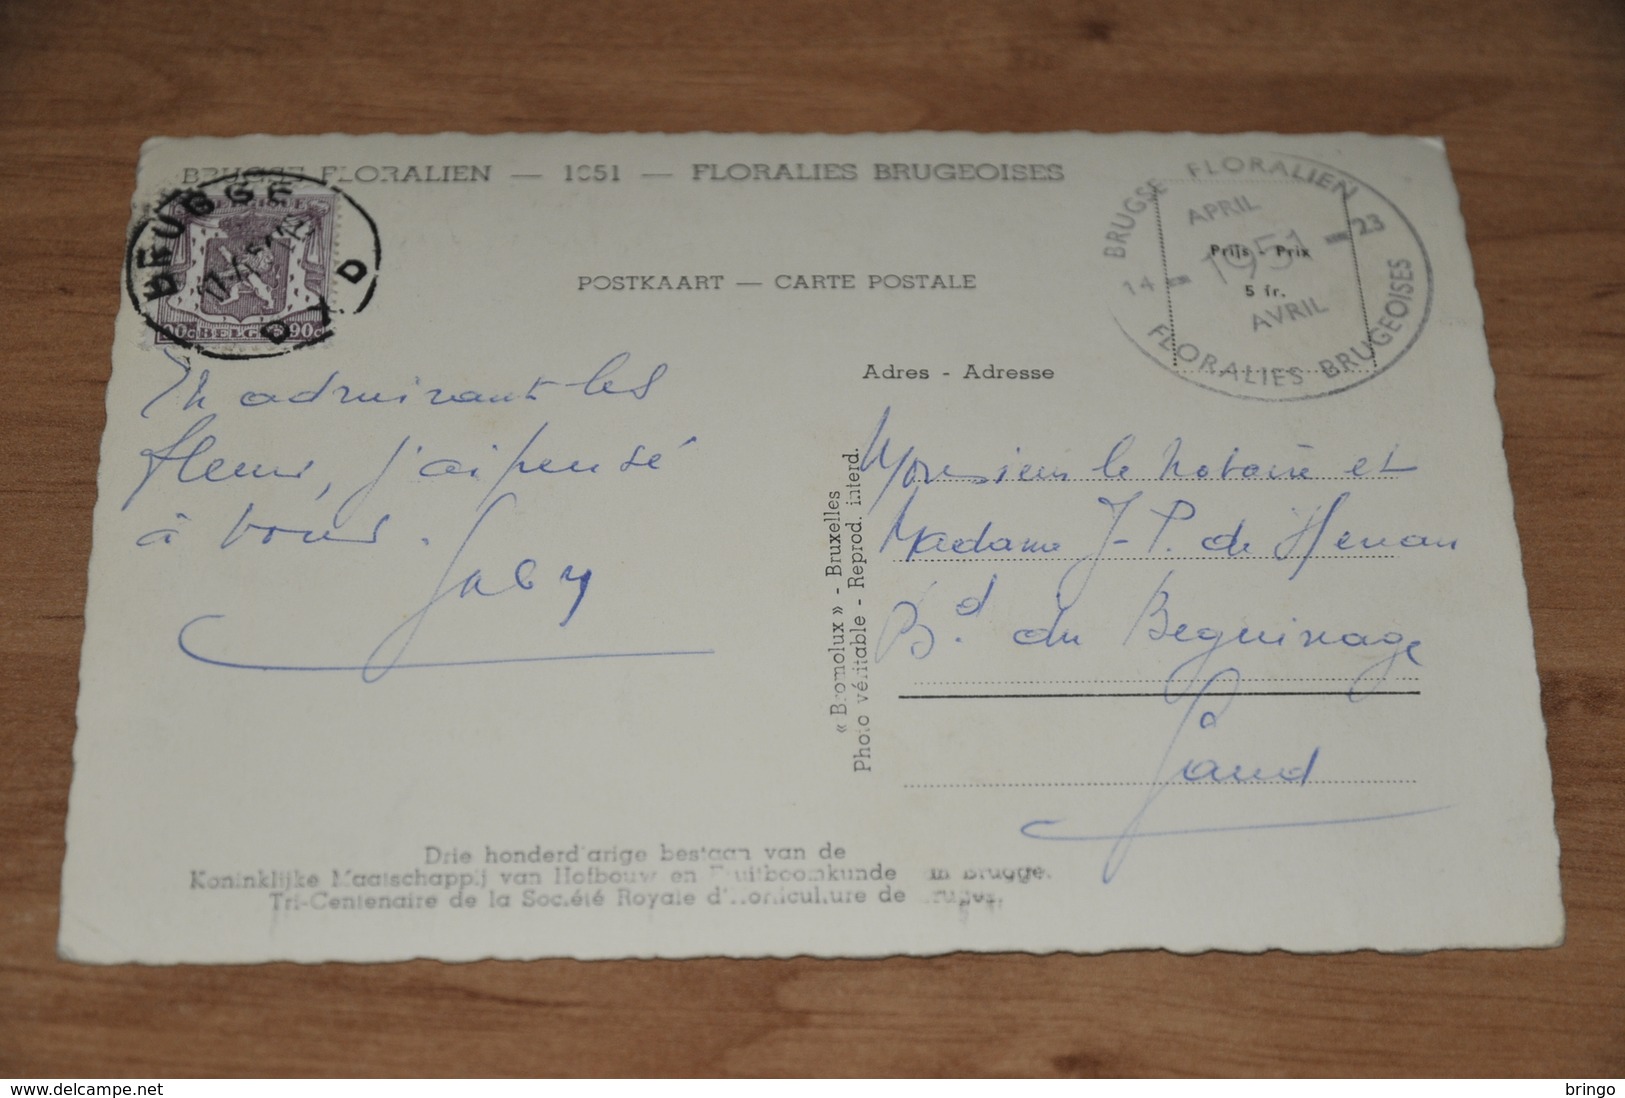 BRUGSE FLORALIEN — 1951 — FLORALIES BRUGEOISES
BRUGGE
D
D
BELGIQUE
90c BELGIE 90c
POSTKAART — CARTE POSTALE
BRUGSE FLORALIEN
APRIL
14 - 1951 - 23
AVRIL
FLORALIES BRUGEOISES
Prijs - Prix
5 fr.
En admirant les
fleurs, j'ai pensé
à vous.
Gaby
Adres - Adresse
Monsieur le Notaire et
Madame J-P. de
Bd. du Beguinage
Gand
« Bromolux » - Bruxelles
Photo véritable - Reprod. interd.
Drie honderdjarige bestaan van de
Koninklijke Maatschappij van Hofbouw en Fruitboomkunde in Brugge.
Tri-Centenaire de la Société Royale d'Horticulture de Bruges.
www.delcampe.net
bringo